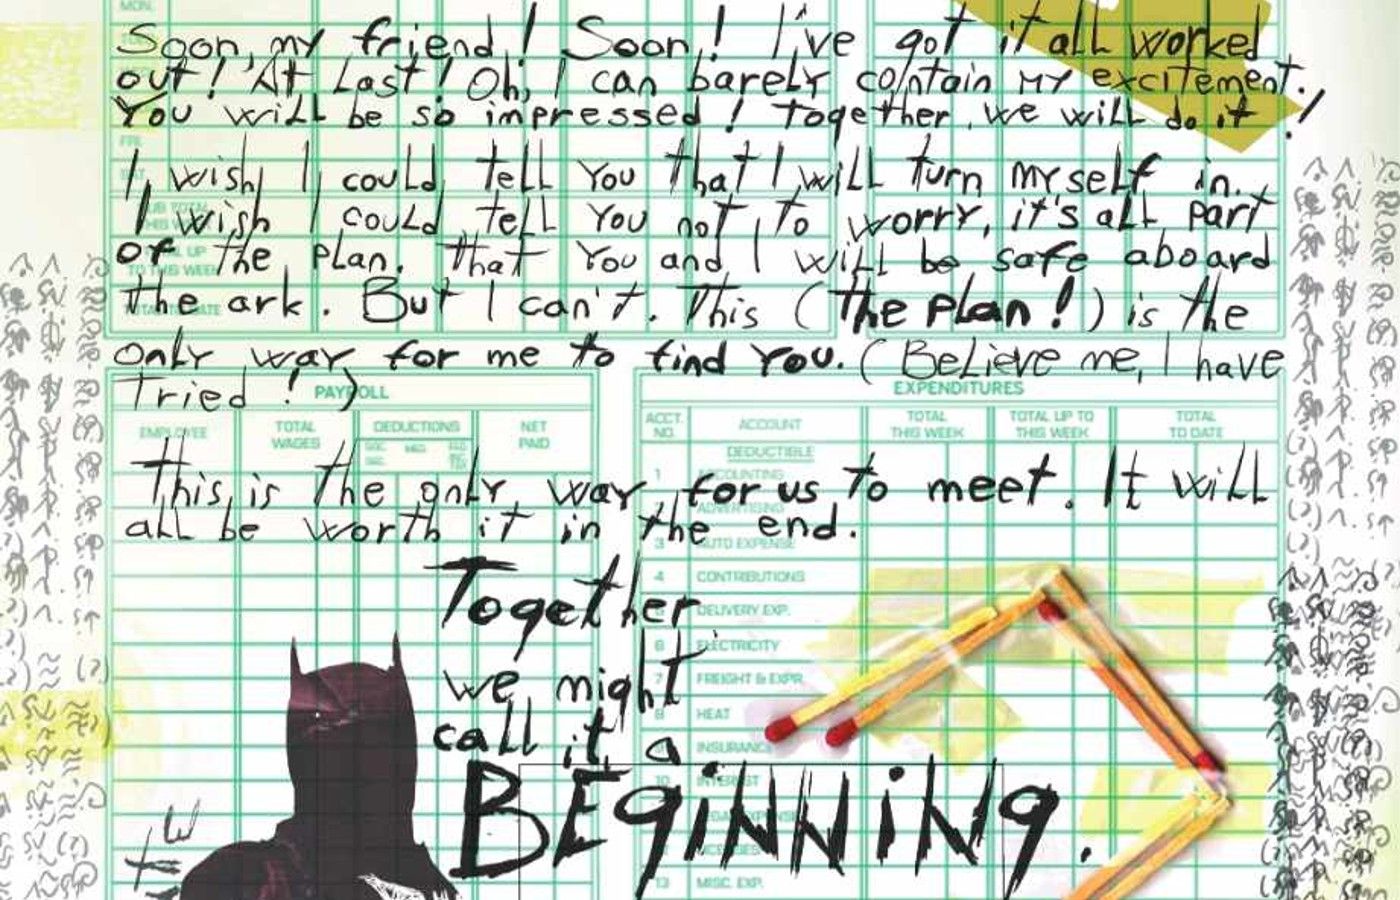 MON.
Soon, my friend! Soon! I've got it all worked
out! At Last! Oh, I can barely contain my excitement.
You will be so impressed! Together, we will do it!
FRI.
I wish I could tell you that I will turn myself in.
SUB TOTAL
THIS WEEK
I wish I could tell you not to worry, it's all part
of the plan. That you and I will be safe aboard
TO THIS WEEK
the ark. But I can't. This (the plan!) is the
TOTAL TO DATE
only way for me to find you. (Believe me, I have
Tried!)
PAYROLL
EXPENDITURES
EMPLOYEE
TOTAL WAGES
DEDUCTIONS
NET PAID
ACCT. NO.
ACCOUNT
TOTAL THIS WEEK
TOTAL UP TO THIS WEEK
TOTAL TO DATE
DEDUCTIBLE
1 ACCOUNTING
this is the only way for us to meet. It will
ADVERTISING
all be worth it in the end.
3 AUTO EXPENSE
4 CONTRIBUTIONS
Together
DELIVERY EXP.
6 ELECTRICITY
we might
7 FREIGHT & EXPR.
HEAT
call it a
INSURANCE
10 INTEREST
BEGINNING.
13 MISC. EXP.